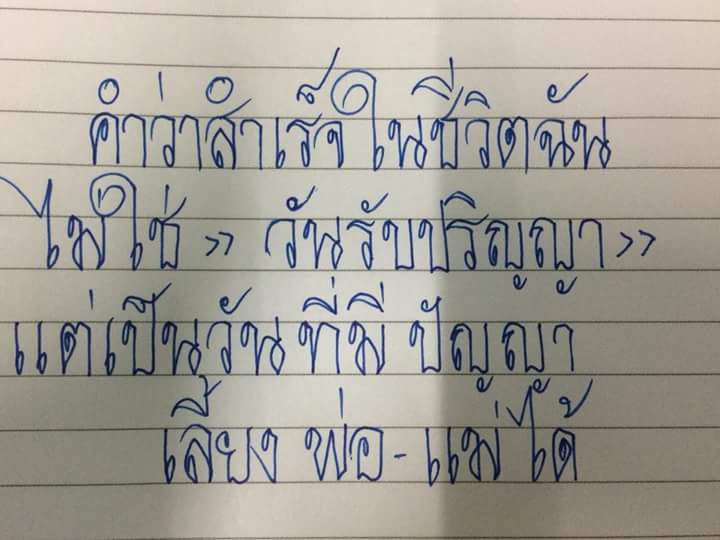 คำว่าสำเร็จในชีวิตฉัน
ไม่ใช่ » วันรับปริญญา »
แต่เป็นวันที่มี ปัญญา
เลี้ยง พ่อ - แม่ได้